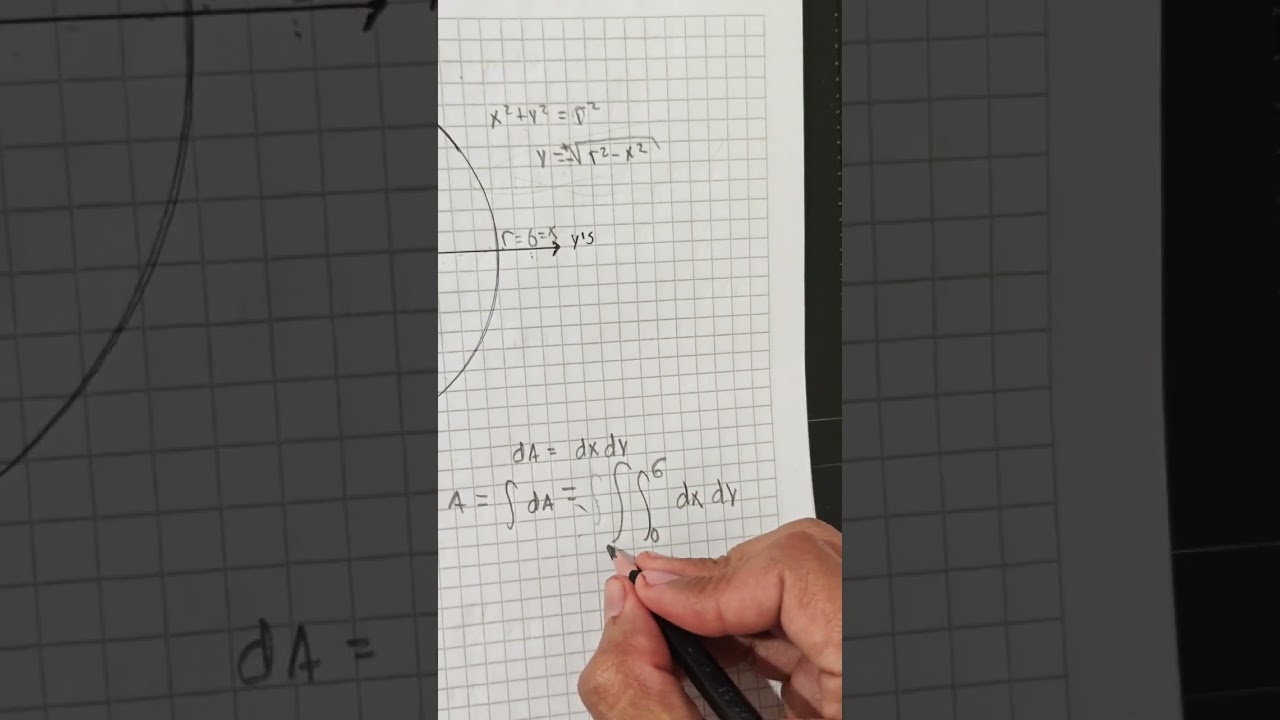 x² + y² = r²
y = ±√(r² - x²)
r = 6 = x y's
dA = dx dy
A = ∫ dA = ∫ ∫₀⁶ dx dy
dA =